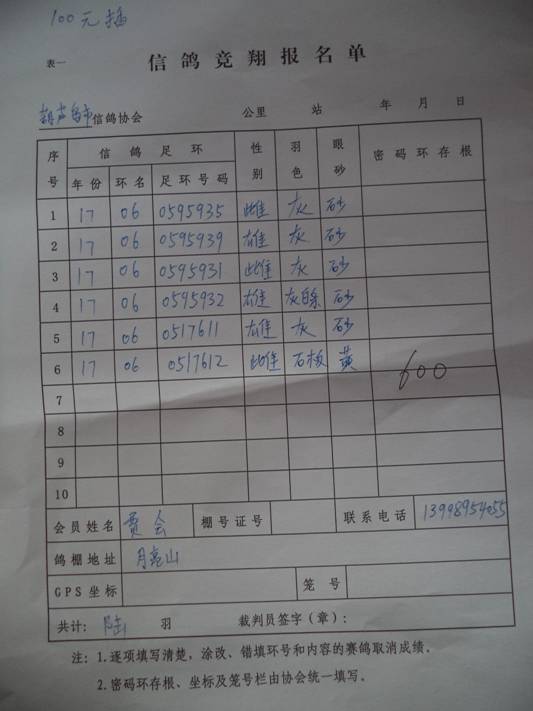 100元插
表一
信鸽竞翔报名单
葫芦岛市信鸽协会 公里 站 年 月 日
序号 信鸽足环 性别 羽色 眼砂 密码环存根
年份 环名 足环号码
1 17 06 0595935 雌 灰 砂
2 17 06 0595939 雄 灰 砂
3 17 06 0595931 雌 灰 砂
4 17 06 0595932 雄 灰白条 砂
5 17 06 0517611 雄 灰 砂
6 17 06 0517612 雌 石板 黄
7 600
8
9
10
会员姓名 贾会 棚号证号 联系电话 13998954055
鸽棚地址 月亮山
GPS坐标 笼号
共计: 陆 羽 裁判员签字(章):
注: 1.逐项填写清楚，涂改、错填环号和内容的赛鸽取消成绩。
2.密码环存根、坐标及笼号栏由协会统一填写。